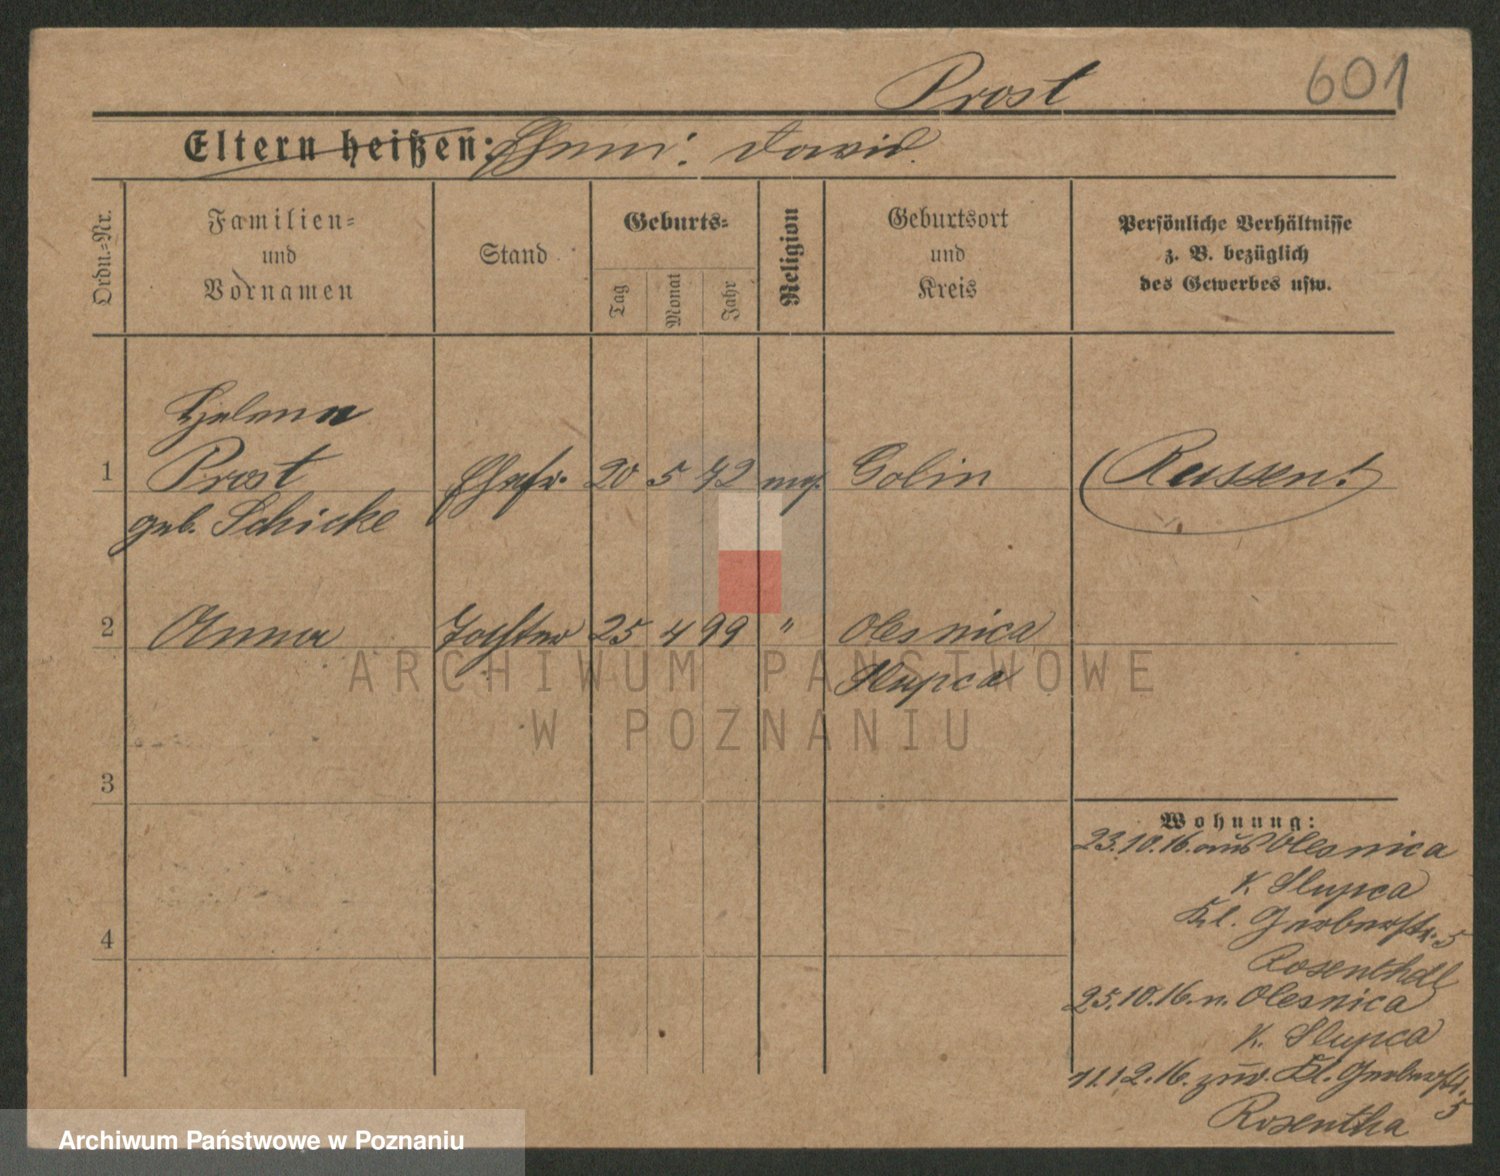 Prost
601
Eltern heißen: Ehem: David.
Ordn.-Nr.
Familien-
und
Vornamen
Stand
Geburts-
Tag
Monat
Jahr
Religion
Geburtsort
und
Kreis
Persönliche Verhältnisse
z. B. bezüglich
des Gewerbes usw.
Helena
1 Prost Ehefr. 20 5 72 Golin Russen!
geb. Schicke
2 Anna Tochter 25 4 99 " Olesnica
Slupca
ARCHIWUM PAŃSTWOWE
W POZNANIU
3
Wohnung:
23.10.16. aus Olesnica
K. Slupca
Kl. Gerberstr. 5
Rosenthal
4
25.10.16. n. Olesnica
K. Slupca
11.12.16. zur. Kl. Gerberstr. 5
Rosentha
Archiwum Państwowe w Poznaniu